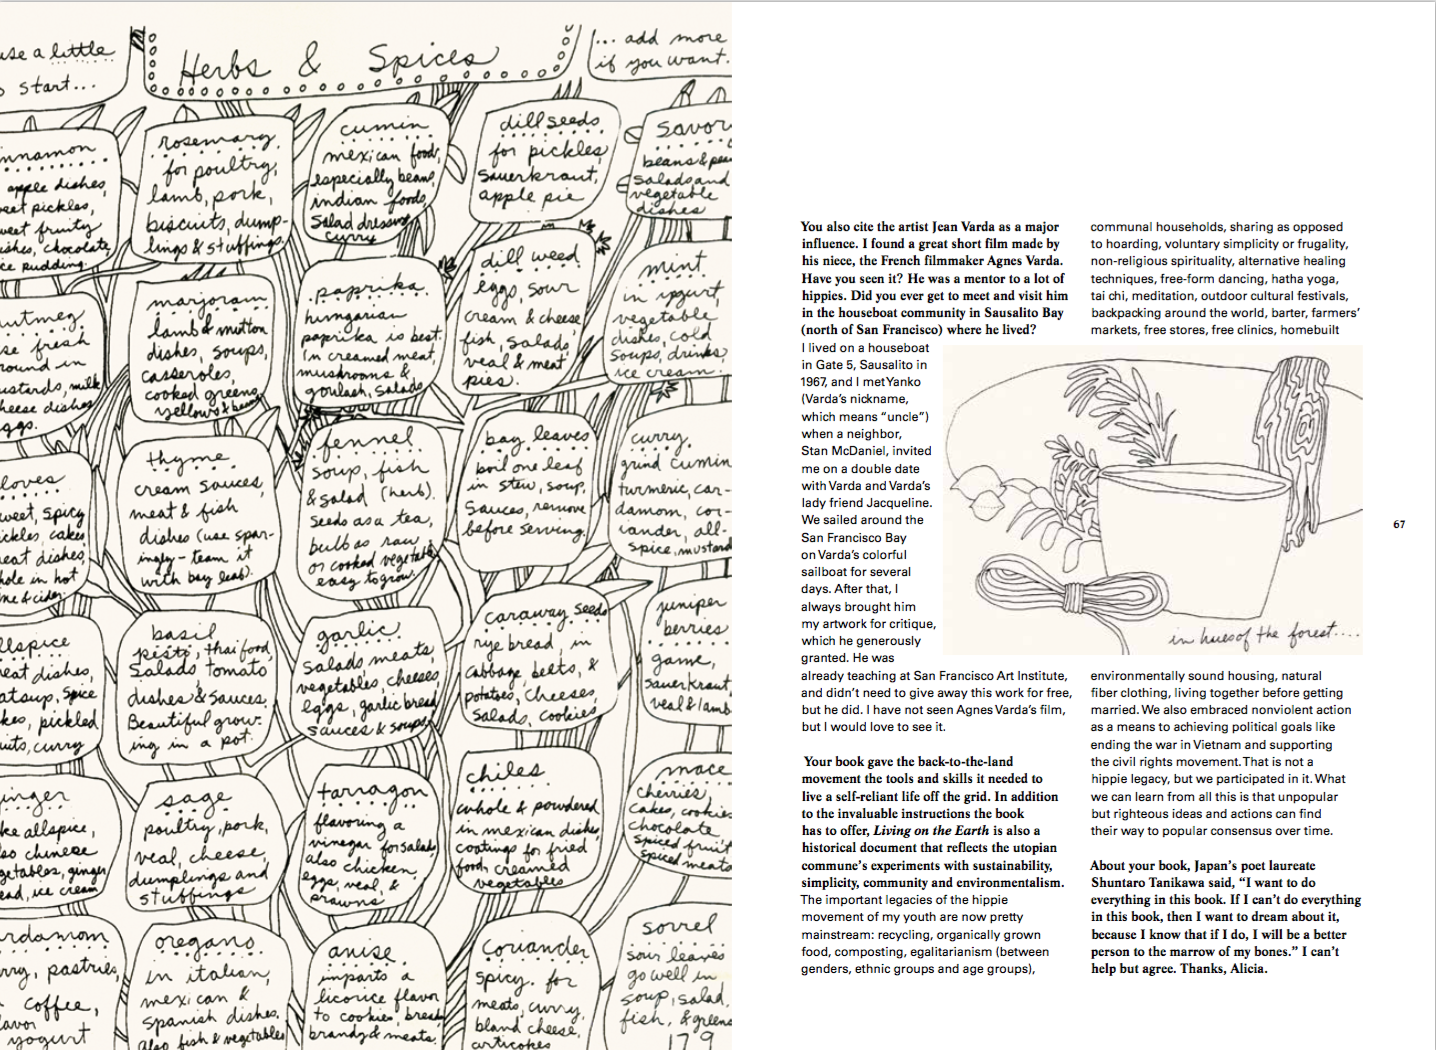 use a little
start...
Herbs & Spices
... add more
if you want.
nnamon
apple dishes,
eet pickles,
weet fruity
ishes, chocolate,
ice pudding.
rosemary.
for poultry,
lamb, pork,
biscuits, dump-
lings & stuffings.
cumin
mexican food,
especially beans,
indian foods,
salad dressing
curry
dill seeds
for pickles,
sauerkraut,
apple pie
savor
beans & pea
salads and
vegetable
dishes
utmeg
se fresh
round in
ustards, milk
heese dishes
ggs.
marjoram
lamb & mutton
dishes, soups,
casseroles,
cooked greens
yellows & beans
paprika.
hungarian
paprika is best.
in creamed meat,
mushrooms &
goulash, salads
dill weed
eggs, sour
cream & cheese
fish, salads,
veal & meat
pies.
mint
in yogurt,
vegetable
dishes, cold
soups, drinks,
ice cream.
loves
weet, spicy
ickles, cakes
meat dishes
hole in hot
ne & cider.
thyme
cream sauces,
meat & fish
dishes (use spar-
ingly - team it
with bay leaf).
fennel
soup, fish
& salad (herb).
seeds as a tea,
bulb as raw
or cooked vegetable
easy to grow.
bay leaves
boil one leaf
in stew, soup,
sauces, remove
before serving.
curry
grind cumin
turmeric, car-
damom, cor-
iander, all-
spice, mustard
llspice
eat dishes,
atsup, spice
kes, pickled
uits, curry
basil
pesto, thai food
salads, tomato
dishes & sauces.
Beautiful grow-
ing in a pot.
garlic
salads, meats,
vegetables, cheeses
eggs, garlic bread
sauces & soups
caraway seeds
rye bread, in
cabbage, beets, &
potatoes, cheeses,
salads, cookies
juniper
berries
game,
sauerkraut,
veal & lamb
inger
ke allspice,
lso chinese
getables, ginger
ead, ice cream
sage
poultry, pork,
veal, cheese,
dumplings and
stuffings
tarragon
flavoring a
vinegar for salads
also chicken,
eggs, veal, &
prawns
chiles
whole & powdered
in mexican dishes,
coatings for fried
food, creamed
vegetables
mace
cherries,
cakes, cookies
chocolate
spiced fruit
spiced meats
rdamom
rry, pastries,
coffee,
lavor
yogurt
oregano
in italian,
mexican &
spanish dishes.
Also fish & vegetables
anise
imparts a
licorice flavor
to cookies, breads
brandy & meats.
coriander
spicy. for
meats, curry,
bland cheese,
artichokes
sorrel
sour leaves
go well in
soup, salad,
fish, & greens
179
You also cite the artist Jean Varda as a major
influence. I found a great short film made by
his niece, the French filmmaker Agnes Varda.
Have you seen it? He was a mentor to a lot of
hippies. Did you ever get to meet and visit him
in the houseboat community in Sausalito Bay
(north of San Francisco) where he lived?
I lived on a houseboat
in Gate 5, Sausalito in
1967, and I met Yanko
(Varda's nickname,
which means "uncle")
when a neighbor,
Stan McDaniel, invited
me on a double date
with Varda and Varda's
lady friend Jacqueline.
We sailed around the
San Francisco Bay
on Varda's colorful
sailboat for several
days. After that, I
always brought him
my artwork for critique,
which he generously
granted. He was
already teaching at San Francisco Art Institute,
and didn't need to give away this work for free,
but he did. I have not seen Agnes Varda's film,
but I would love to see it.
Your book gave the back-to-the-land
movement the tools and skills it needed to
live a self-reliant life off the grid. In addition
to the invaluable instructions the book
has to offer, Living on the Earth is also a
historical document that reflects the utopian
commune's experiments with sustainability,
simplicity, community and environmentalism.
The important legacies of the hippie
movement of my youth are now pretty
mainstream: recycling, organically grown
food, composting, egalitarianism (between
genders, ethnic groups and age groups),
communal households, sharing as opposed
to hoarding, voluntary simplicity or frugality,
non-religious spirituality, alternative healing
techniques, free-form dancing, hatha yoga,
tai chi, meditation, outdoor cultural festivals,
backpacking around the world, barter, farmers'
markets, free stores, free clinics, homebuilt
in hues of the forest....
environmentally sound housing, natural
fiber clothing, living together before getting
married. We also embraced nonviolent action
as a means to achieving political goals like
ending the war in Vietnam and supporting
the civil rights movement. That is not a
hippie legacy, but we participated in it. What
we can learn from all this is that unpopular
but righteous ideas and actions can find
their way to popular consensus over time.
About your book, Japan's poet laureate
Shuntaro Tanikawa said, "I want to do
everything in this book. If I can't do everything
in this book, then I want to dream about it,
because I know that if I do, I will be a better
person to the marrow of my bones." I can't
help but agree. Thanks, Alicia.
67